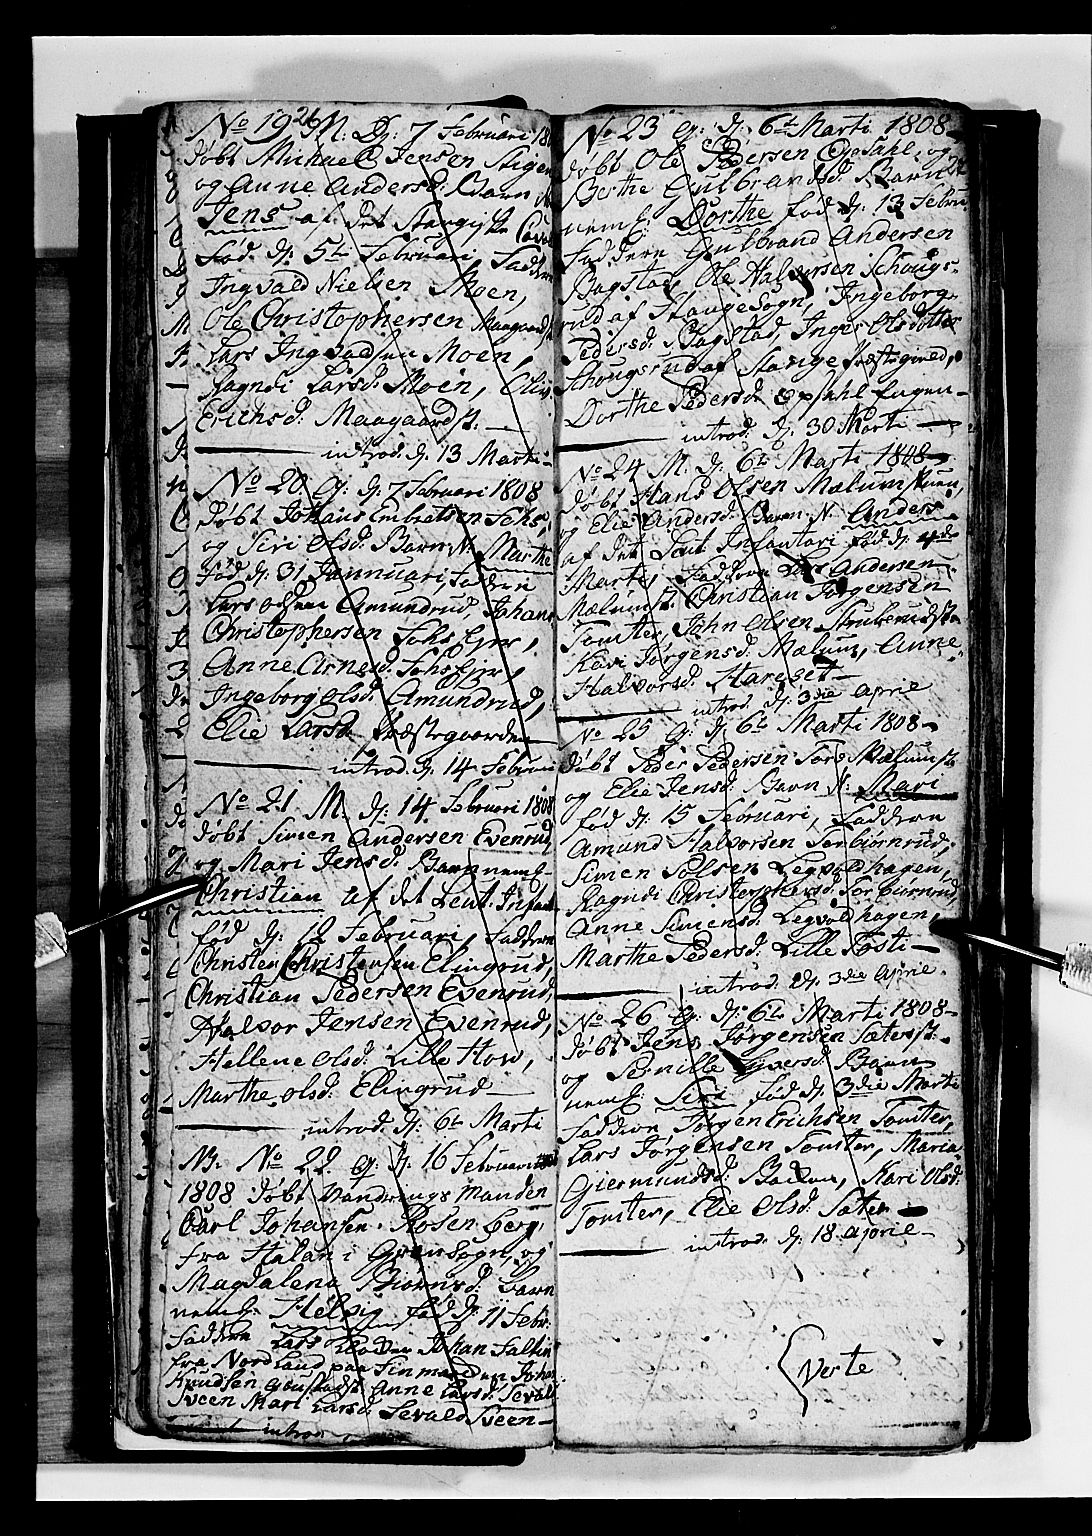 No 19 M. D: 7 Februari 18
døbt Michael Jensen Stigen
og Anne Andersd: Barn N
Jens af det Stangiske
fød d: 5te Februari, Faddere
Ingvald Nielsen Moen,
Ole Christophersen Maagaard
Lars Ingvaldsen Moen,
Ragndi Larsd: Moen, Oliv
Erichsd: Maagaardst. —
introd. d: 13 Marti
No 20. q: d: 7 Februari 1808
døbt Johans Embretsen
og Siri Olsd: Barn N. Marthe
fød d: 31 Jannuari, Faddere
Lars Olsen Amundrud, Johans
Christophersen
Anne Arnesd:
Ingeborg Olsd: Amundrud,
Elie Larsd. Præstegaarden
introd. d: 14 Februari
No 21. M. d: 14 Februari 1808
døbt Simen Andersen Evenrud,
og Mari Jensd: Barn nemf-
Christian af det Leut. Infant
fød d: 12 Februari, Faddere
Christen Christensen Elingrud,
Christian Pedersen Evenrud,
Halvor Jensen Evenrud,
Hellene Olsd: Lille How,
Marthe Olsd: Elingrud
introd. d: 6te Marti
NB. No 22. q: d: 16 Februari
1808 døbt Vandrings Manden
Carl Johansen Rosenberg,
fra Halan i Sogn, og
Magdalena Biørnsd: Barn
nemf: Helvig fød d: 11 Febr.
Faddere Lars Johan
fra Nordland paa Finmarden, Johan
Knudsen Anne Larsd: Sevald
Sveen Mari Larsd: Sevald Sveen —
introd
No 23 q: d: 6te Marti 1808 —
døbt Ole Pedersen Opsahl, og
Berthe Gulbrandsd: Barn
nemf: Dorthe fød d: 13 Febru
Faddere Gulbrand Andersen
Bagstad, Ole Halvorsen Schougs-
rud af Stange Sogn, Ingeborg
Pedersd: Bagstad, Inger Olsdotter
Schougsrud af Stange Præstegield,
Dorthe Pedersd: Opsahl Eugen —
introd. d: 30 Marti —
No 24 M. d: 6te Marti 1808 —
døbt Hans Olsen Mælumstuen,
og Elie Andersd: Barn N. Anders
af det Leut Infantari fød d: 4de
Marti, Faddere Lars Andersen
Mælumst. Christian Jørgensen
Tomter, John Olsen
Kari Jørgensd: Mælum, Anne
Halvorsd: Hareset —
introd d: 3die Aprie
No 25 q: d: 6te Marti 1808 —
døbt Peder Pedersen Mælumst
og Elie Jensd: Barn N: Mari
fød d: 15 Februari, Faddere
Amund Halvorsen Torbiørnrud,
Simen Colsen Legvolhagen,
Ragndi Christophersd: Torbiørnrud,
Anne Simensd: Legvolhagen,
Marthe Pedersd: Lille Tosti —
introd d: 3die Aprie.
No 26 q: d: 6te Marti 1808 —
døbt Jens Jørgensen Sæterst.
og Pernille Barn
nemf: Siri fød d: 3die Marti
Faddere Jørgen Erichsen Tomter,
Lars Jørgensen Tomter, Maria
Giermundsd: Kari Olsd:
Tomter, Elie Olsd: Sæter —
introd. d: 18 Aprie —
Verte